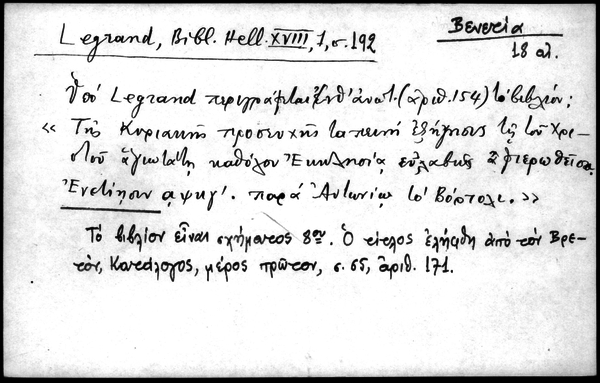 Legrand, Bibl. Hell. XVIII, 1, σ. 192
Βενετία
18 αἰ.
Ὑπό Legrand περιγράφεται ἀνωτ. (ἀριθ. 154) τό βιβλίον:
« Τῆς Κυριακῆς προσευχῆς ταπεινή ἐξήγησις τῇ τοῦ Χρι-
στοῦ ἁγιωτάτῃ καθόλου Ἐκκλησίᾳ εὐλαβῶς ἀφιερωθεῖσα.
Ἐνετίῃσιν αψκγ΄. παρά Ἀντωνίῳ τῷ Βόρτολι. »
Τό βιβλίον εἶναι σχήματος 8ου. Ὁ τίτλος ἐλήφθη ἀπό τόν Βρε-
τόν, Κατάλογος, μέρος πρῶτον, σ. 55, ἀριθ. 171.